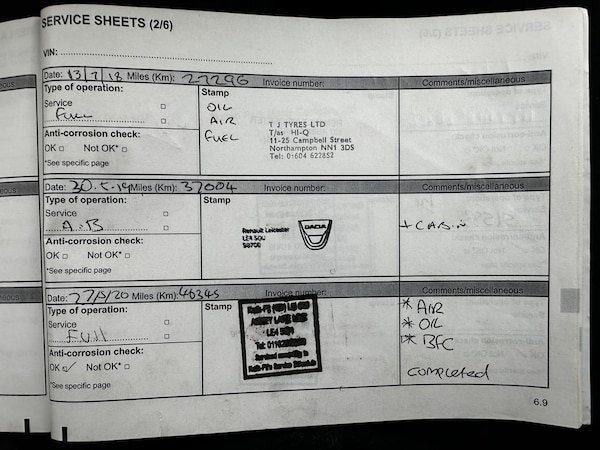 SERVICE SHEETS (2/6)
VIN:
Date: 13/7/18 Miles (Km): 27296 Invoice number: Comments/miscellaneous
Type of operation: Stamp
Service
FULL
OIL
AIR
FUEL
T J TYRES LTD
T/as HI-Q
11-25 Campbell Street
Northampton NN1 3DS
Tel: 01604 622852
Anti-corrosion check:
OK Not OK*
*See specific page
Date: Miles (Km): 37004 Invoice number: Comments/miscellaneous
Type of operation: Stamp
Service
A.B
Renault Leicester
DACIA
+ CABIN
Anti-corrosion check:
OK Not OK*
*See specific page
Date: 27/5/20 Miles (Km): 46345 Invoice number: Comments/miscellaneous
Type of operation: Stamp
Service
FULL
ABBEY LANE
* AIR
* OIL
* BFC
completed
Anti-corrosion check:
OK Not OK*
*See specific page
6.9